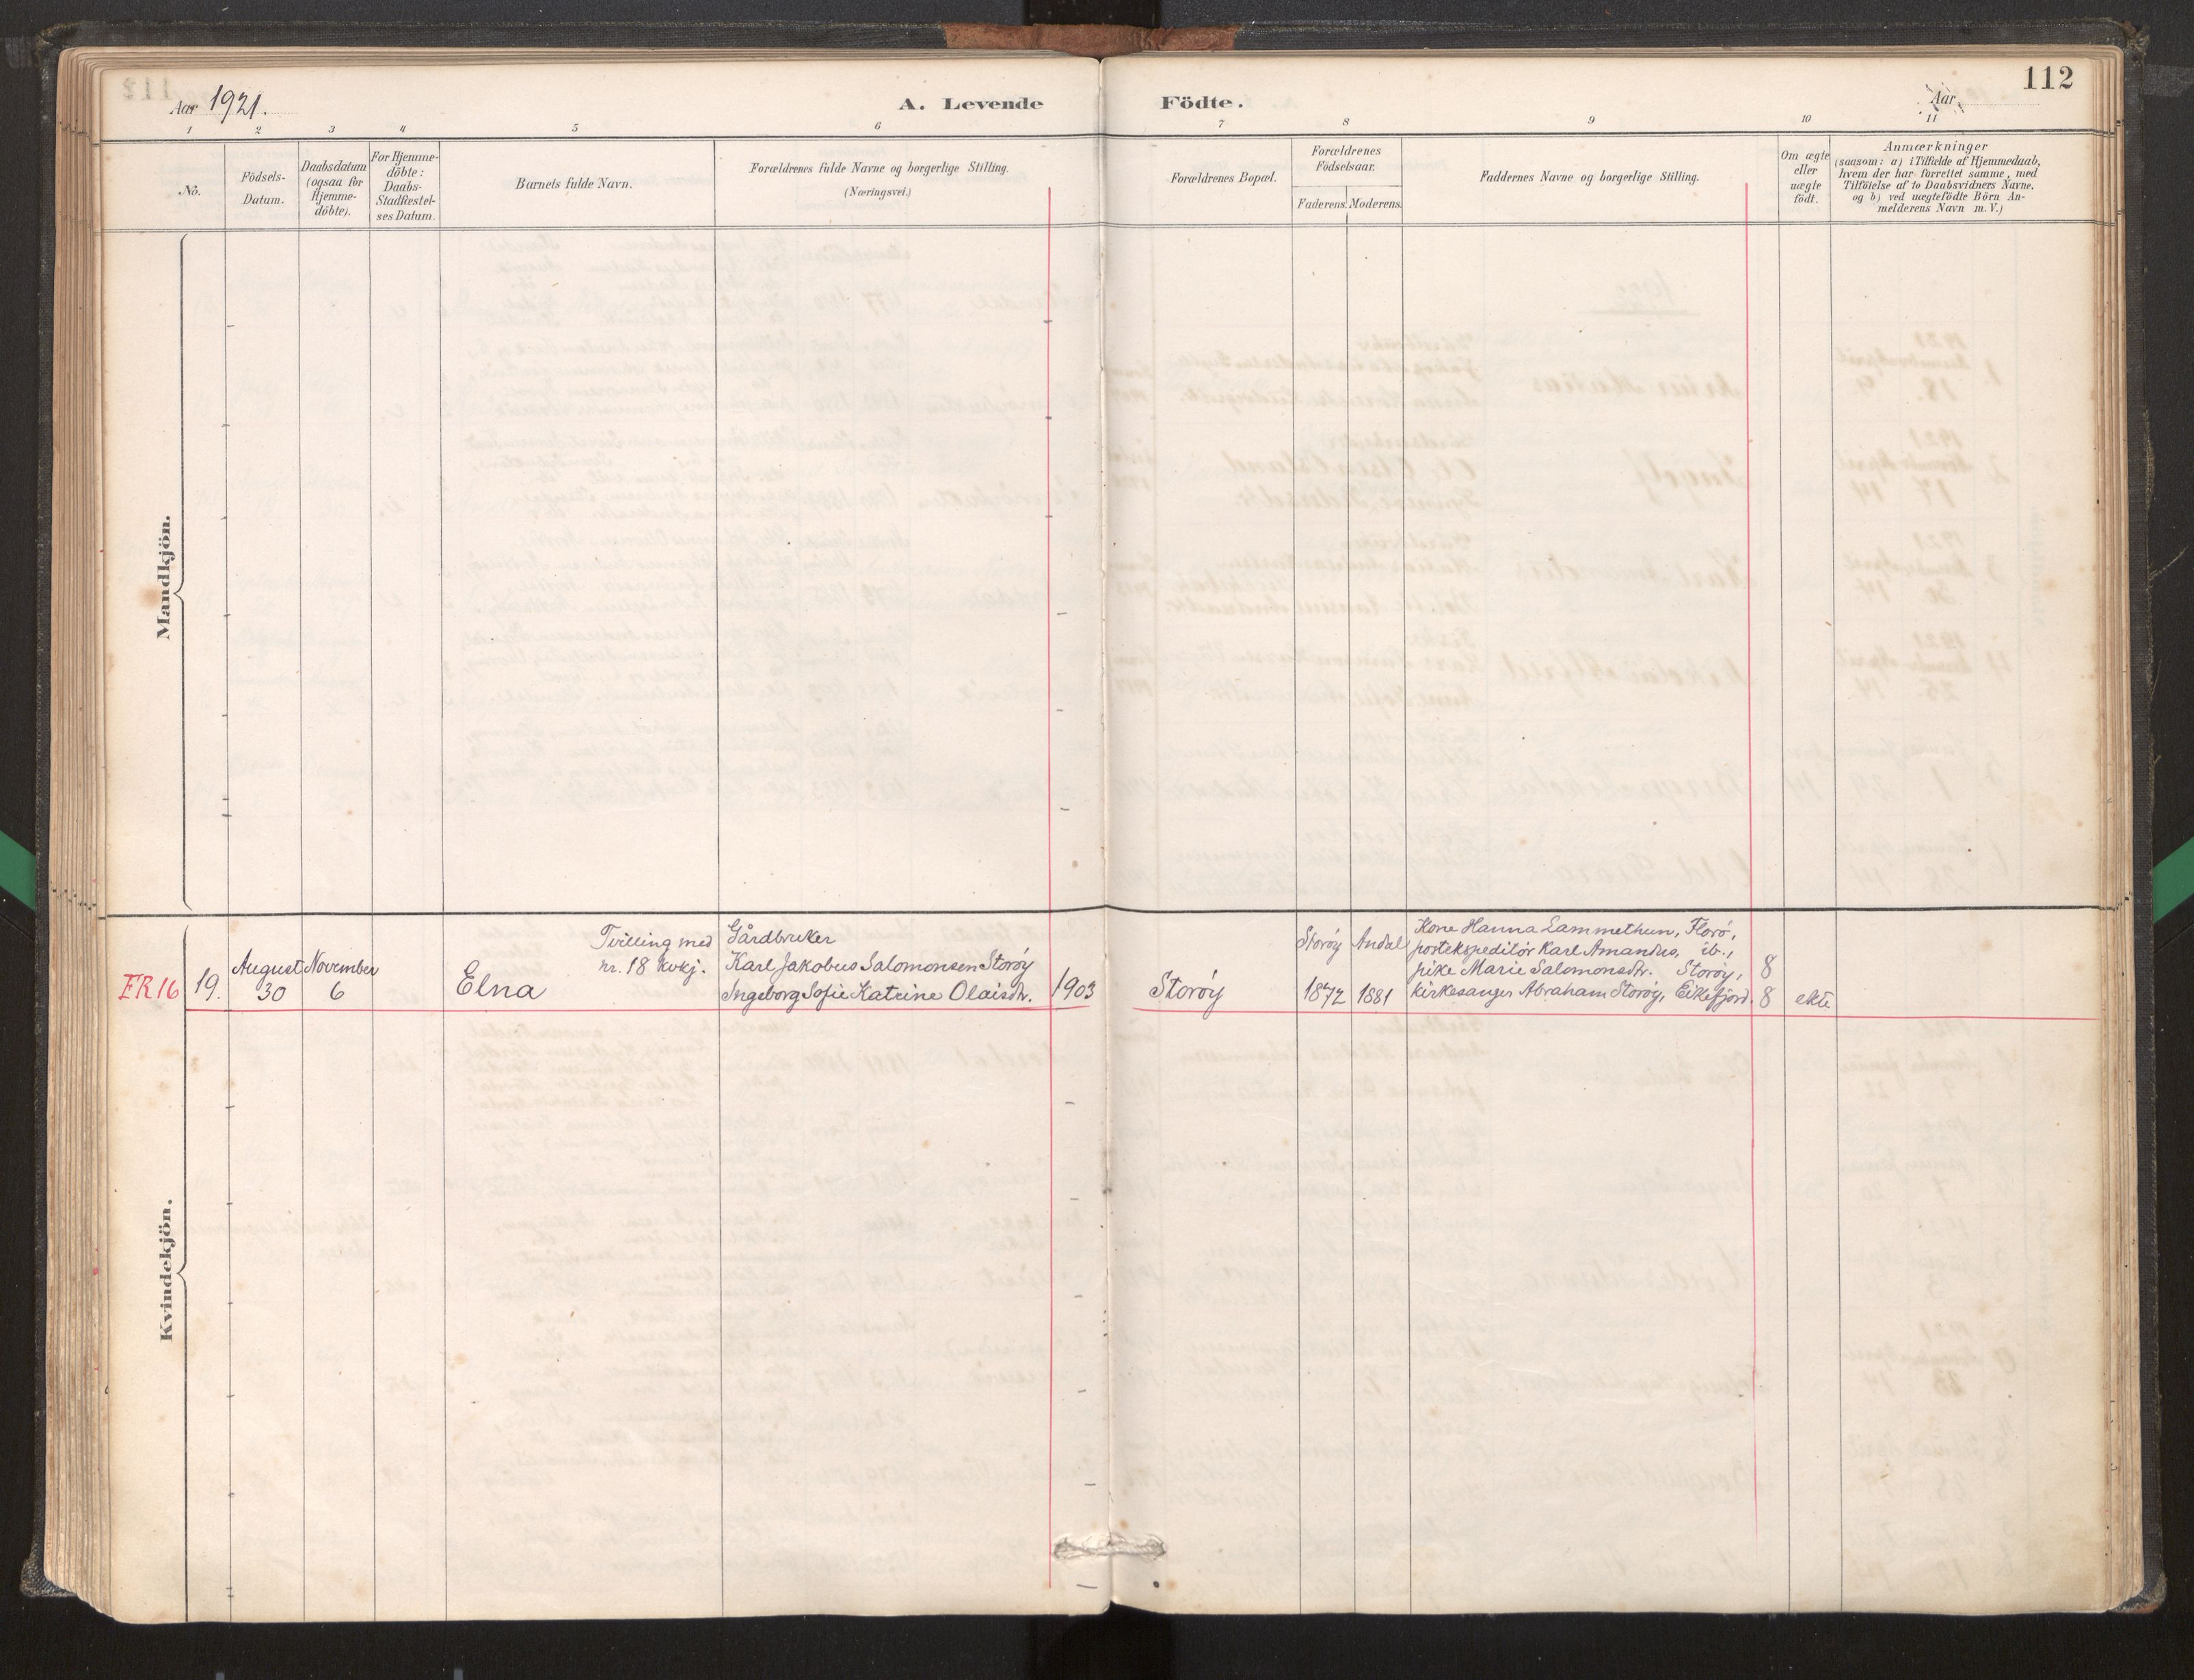 Aar 1921.
A. Levende Födte.
Aar
112
1 2 3 4 5 6 7 8 9 10 11
Nô.
Födsels-
Datum.
Daabsdatum
(ogsaa for
Hjemme-
döbte).
For Hjemme-
döbte:
Daabs-
Stadfæstel-
ses Datum.
Barnets fulde Navn.
Forældrenes fulde Navne og borgerlige Stilling.
(Næringsvei.)
Forældrenes Bopæl.
Forældrenes
Födselsaar.
Faderens. Moderens.
Faddernes Navne og borgerlige Stilling.
Om ægte
eller
uægte
födt.
Anmærkninger
(saasom: a) i Tilfælde af Hjemmedaab,
hvem der har forrettet samme, med
Tilföielse af to Daabsvidners Navne,
og b) ved uægtefödte Börn An-
melderens Navn m. V.)
Mandkjön.
Kvindekjön.
FR 16
19.
August
30
November
6
Elna
Tvilling med
nr. 18 kvkj.
Gårdbruker
Karl Jakobus Salomonsen Storøy
Ingeborg Sofie Katrine Olaisdtr.
1903
Storøy
Storøy
1872
Andal
1881
Kone Hanna Lammethun, Florø,
postekspeditör Karl Amandus, ib.,
pike Marie Salomonsdtr. Storøy,
kirkesanger Abraham Storøy, Eikefjord.
8
8
ekte